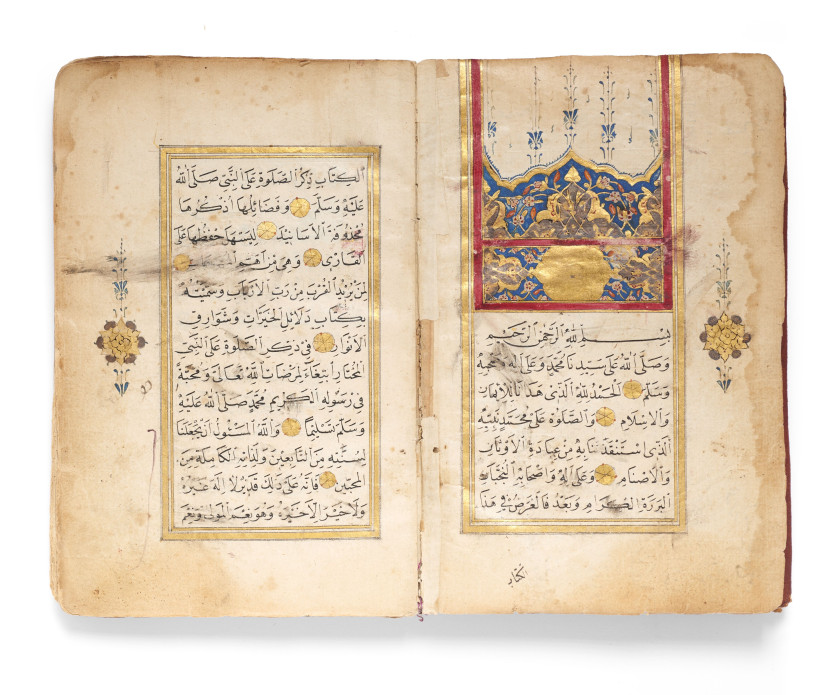 بِسْمِ اللهِ الرَّحْمٰنِ الرَّحِيْمِ
وَصَلَّى اللهُ عَلٰى سَيِّدِنَا مُحَمَّدٍ وَعَلٰى اٰلِهِ وَصَحْبِهِ
وَسَلَّمَ اَلْحَمْدُ لِلّٰهِ الَّذِى هَدٰينَا لِلْاِيْمَانِ
وَالْاِسْلَامِ وَالصَّلٰوةُ عَلٰى مُحَمَّدٍ نَبِيِّهِ
الَّذِى اسْتَنْقَذَنَا بِهِ مِنْ عِبَادَةِ الْاَوْثَانِ
وَالْاَصْنَامِ وَعَلٰى اٰلِهِ وَاَصْحَابِهِ النُّجَبَاءِ
الْبَرَرَةِ الْكِرَامِ وَبَعْدُ فَالْغَرَضُ فِى هٰذَا
الكتاب
اَلْكِتَابِ ذِكْرُ الصَّلٰوةِ عَلَى النَّبِىِّ صَلَّى اللهُ
عَلَيْهِ وَسَلَّمَ وَفَضَائِلِهَا اَذْكُرُهَا
مَحْذُوفَةَ الْاَسَانِيْدِ لِيَسْهُلَ حِفْظُهَا عَلَى
الْقَارِى وَهِىَ مِنْ اَهَمِّ
لِمَنْ يُرِيْدُ الْقُرْبَ مِنْ رَبِّ الْاَرْبَابِ وَسَمَّيْتُهُ
بِكِتَابِ دَلَائِلِ الْخَيْرَاتِ وَشَوَارِقِ
الْاَنْوَارِ فِى ذِكْرِ الصَّلٰوةِ عَلَى النَّبِىِّ
الْمُخْتَارِ ابْتِغَاءً لِمَرْضَاتِ اللهِ تَعَالٰى وَمَحَبَّةً
فِى رَسُولِهِ الْكَرِيْمِ مُحَمَّدٍ صَلَّى اللهُ عَلَيْهِ
وَسَلَّمَ تَسْلِيْمًا وَاللهُ الْمَسْئُولُ اَنْ يَجْعَلَنَا
لِسُنَّتِهِ مِنَ التَّابِعِيْنَ وَلِذَاتِهِ الْكَامِلَةِ مِنَ
الْمُحِبِّيْنَ فَاِنَّهُ عَلٰى ذٰلِكَ قَدِيْرٌ لَا اِلٰهَ غَيْرُهُ
وَلَا خَيْرَ اِلَّا خَيْرُهُ وَهُوَ نِعْمَ الْمَوْلٰى وَنِعْمَ